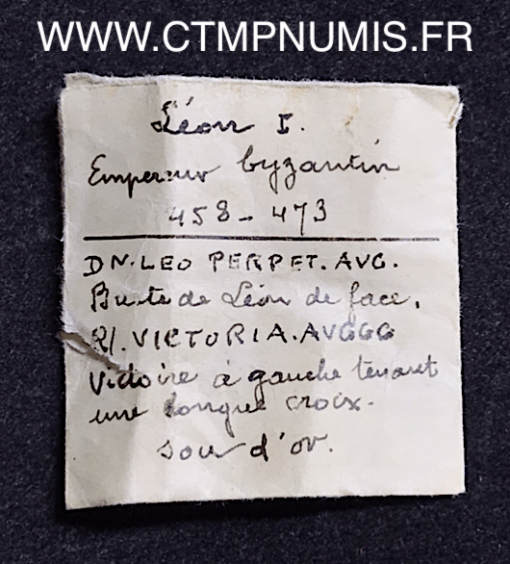 WWW.CTMPNUMIS.FR
Léon I.
Empereur byzantin
458-473
DN.LEO PERPET.AVG.
Buste de Léon de face.
R/.VICTORIA.AVGGG
Victoire à gauche tenant
une longue croix.
sou d'or.